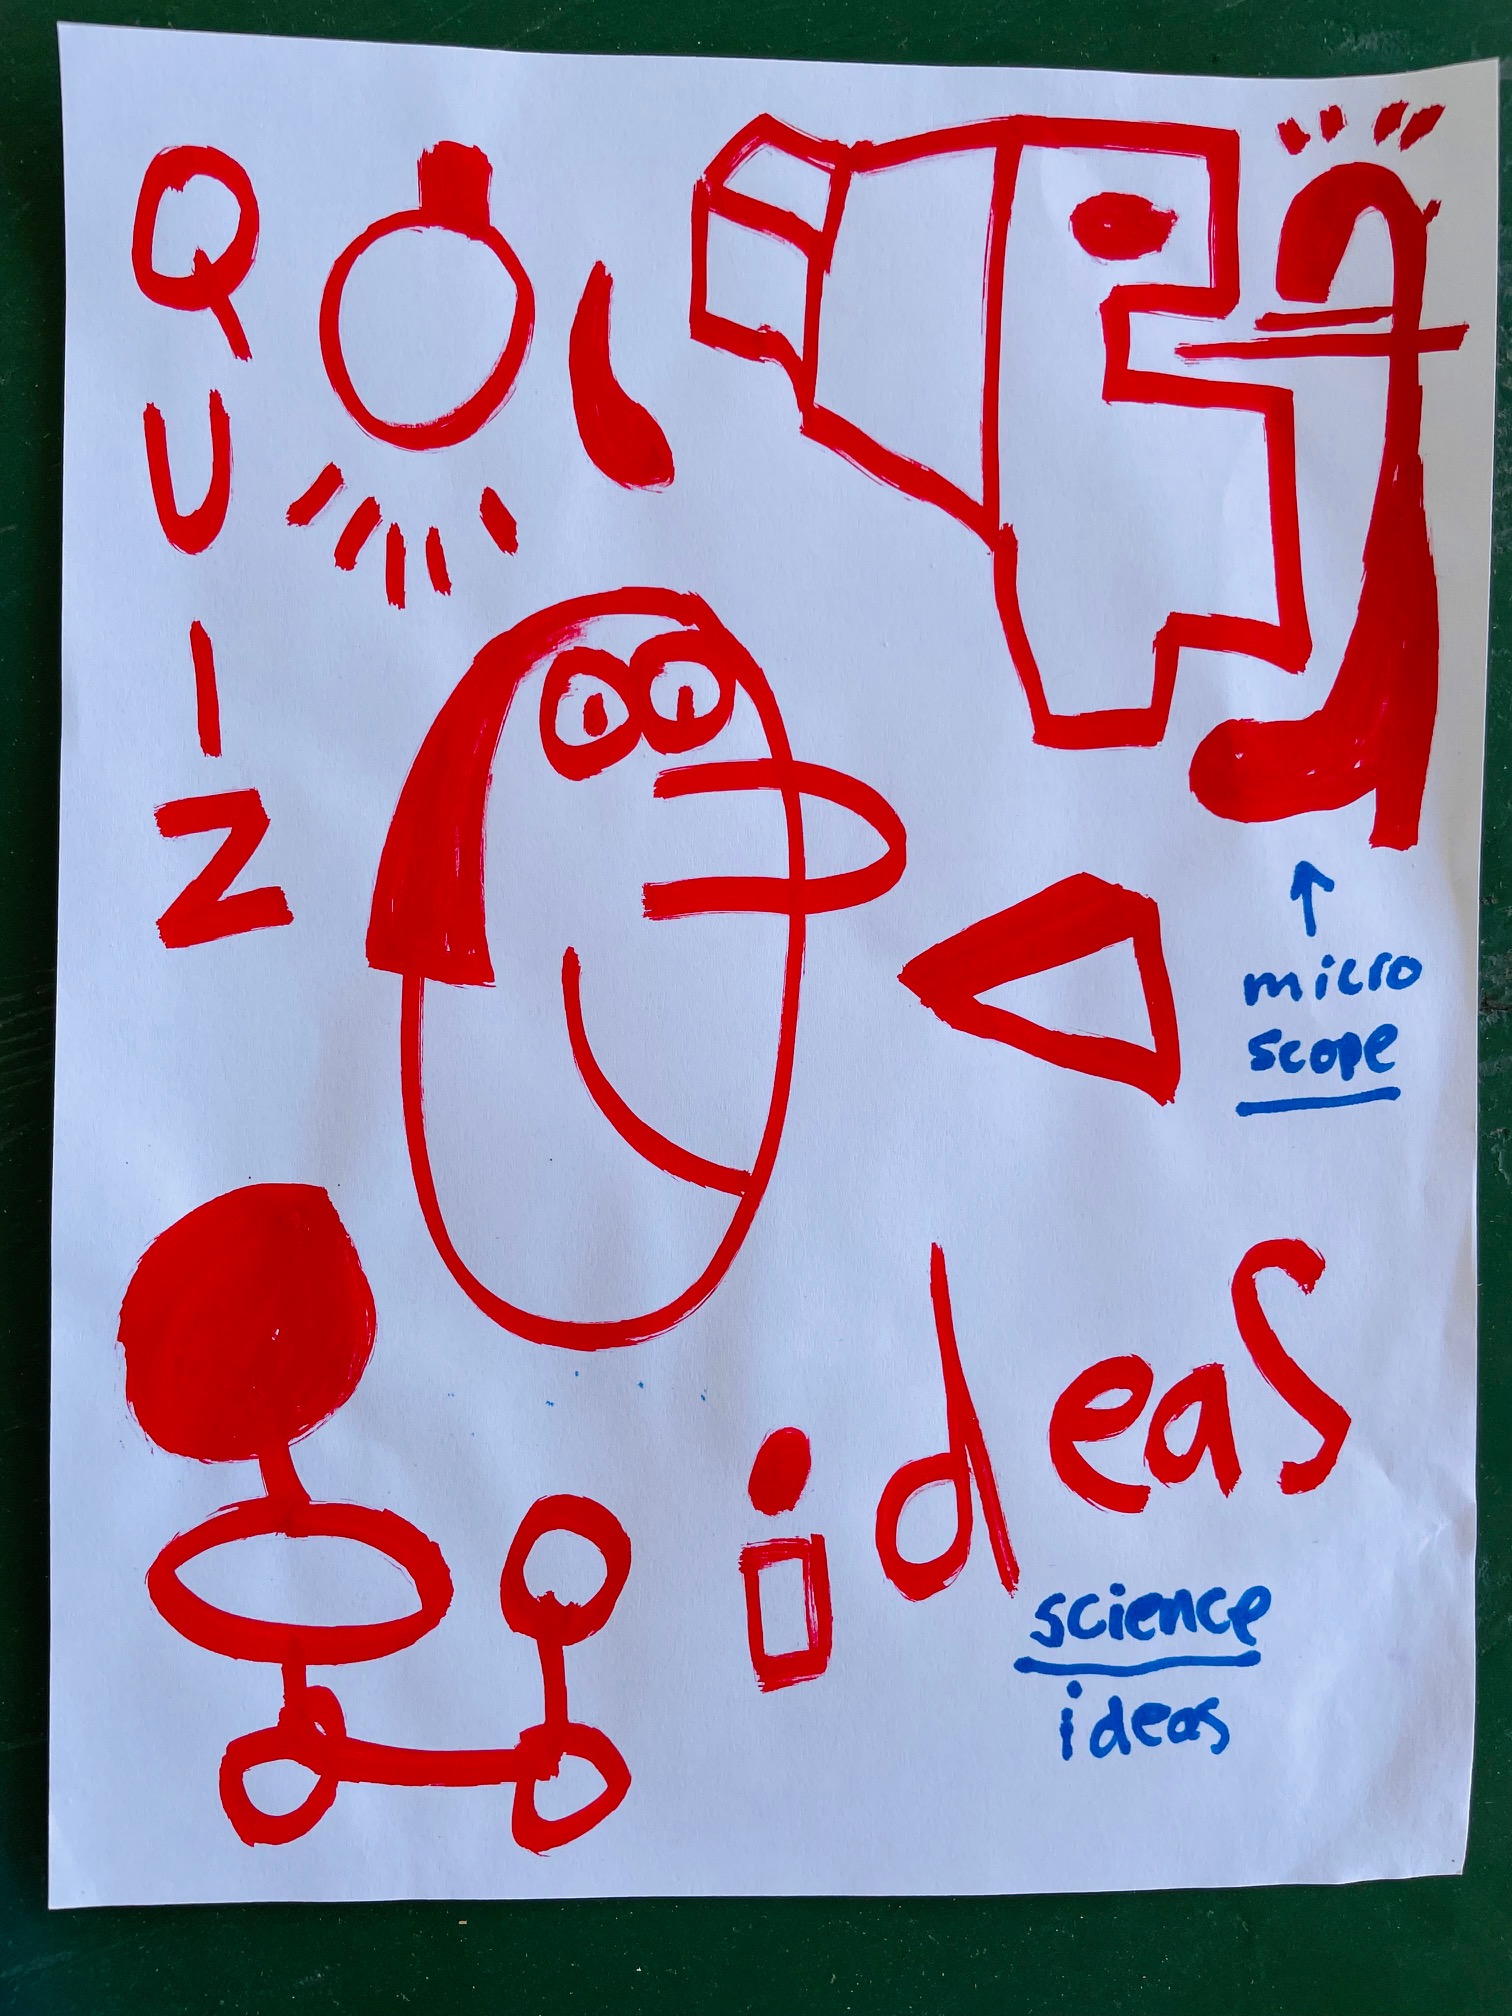 QUIN
micro
scope
ideas
science
ideas